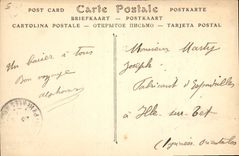 POST CARD Carte Postale POSTKARTE
BRIEFKAART — POSTKART
CARTOLINA POSTALE — ОТКРЫТОЕ ПИСЬМО — TARJETA POSTAL
Un baiser à tous
Bon voyage
Alphonse
Monsieur Marty
Joseph
Fabricant d'Espadrilles
à Ille-sur-Tet
(Pyrénées Orientales